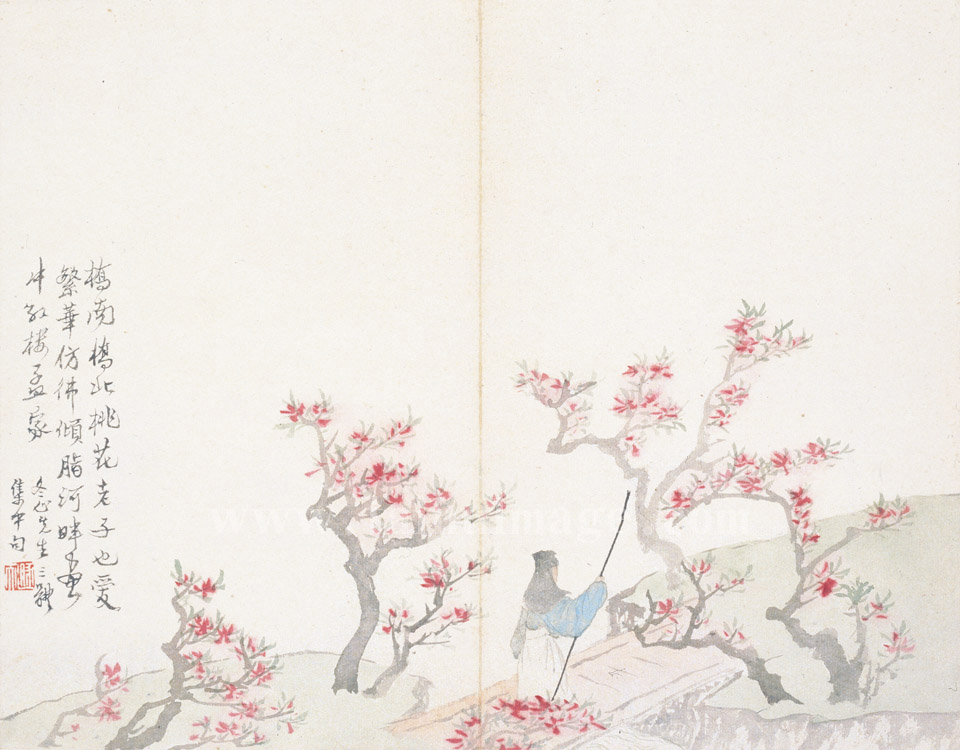 橋南橋北桃花老子也愛
繁華仿彿傾脂河畔畫
中紅樓孟家
冬心先生三體
集中句